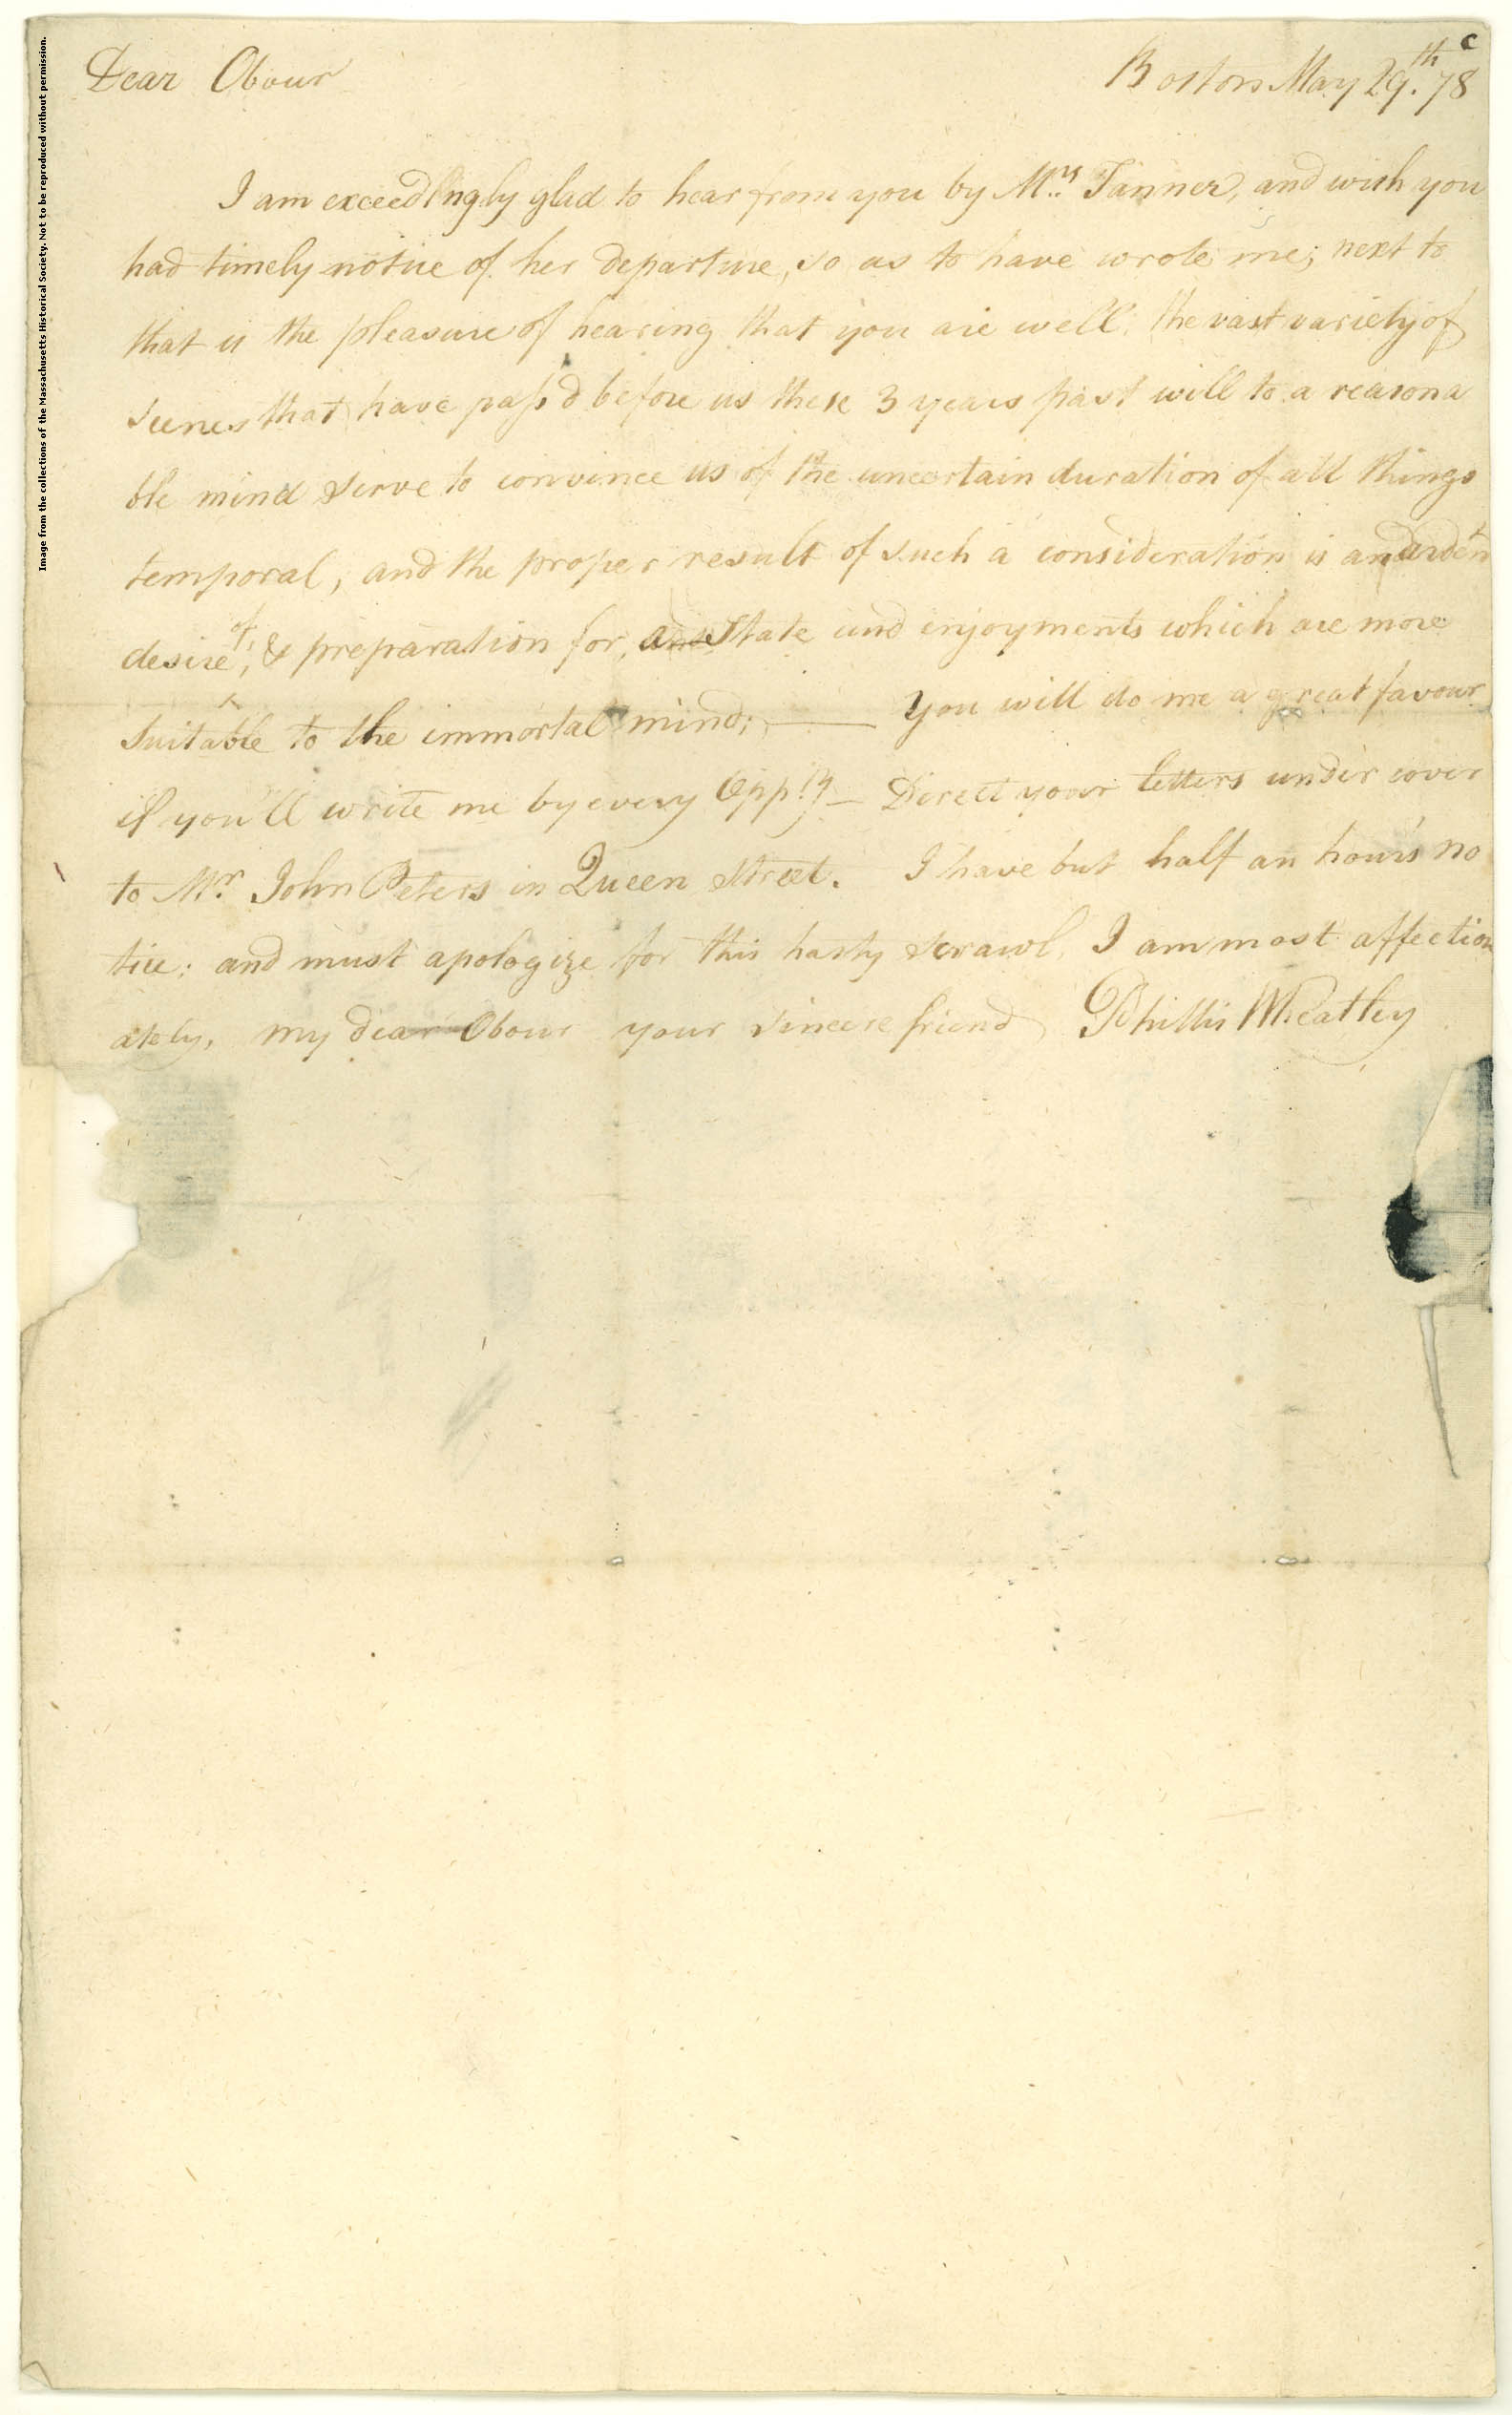 Image from the collections of the Massachusetts Historical Society. Not to be reproduced without permission.
Dear Obour
Boston May 29th. 78
I am exceedingly glad to hear from you by Mrs. Tanner, and wish you
had timely notice of her departure, so as to have wrote me; next to
that is the pleasure of hearing that you are well. The vast variety of
scenes that have pass'd before us these 3 years past will to a reasona
ble mind serve to convince us of the uncertain duration of all things
temporal, and the proper result of such a consideration is an ardent
desire of, & preparation for, a State and enjoyments which are more
suitable to the immortal mind; — You will do me a great favour
if you'll write me by every Oppty — Direct your letters under cover
to Mr. John Peters in Queen Street. I have but half an hour's no
tice; and must apologize for this hasty scrawl, I am most affection
ately, my dear Obour your sincere friend Phillis Wheatley